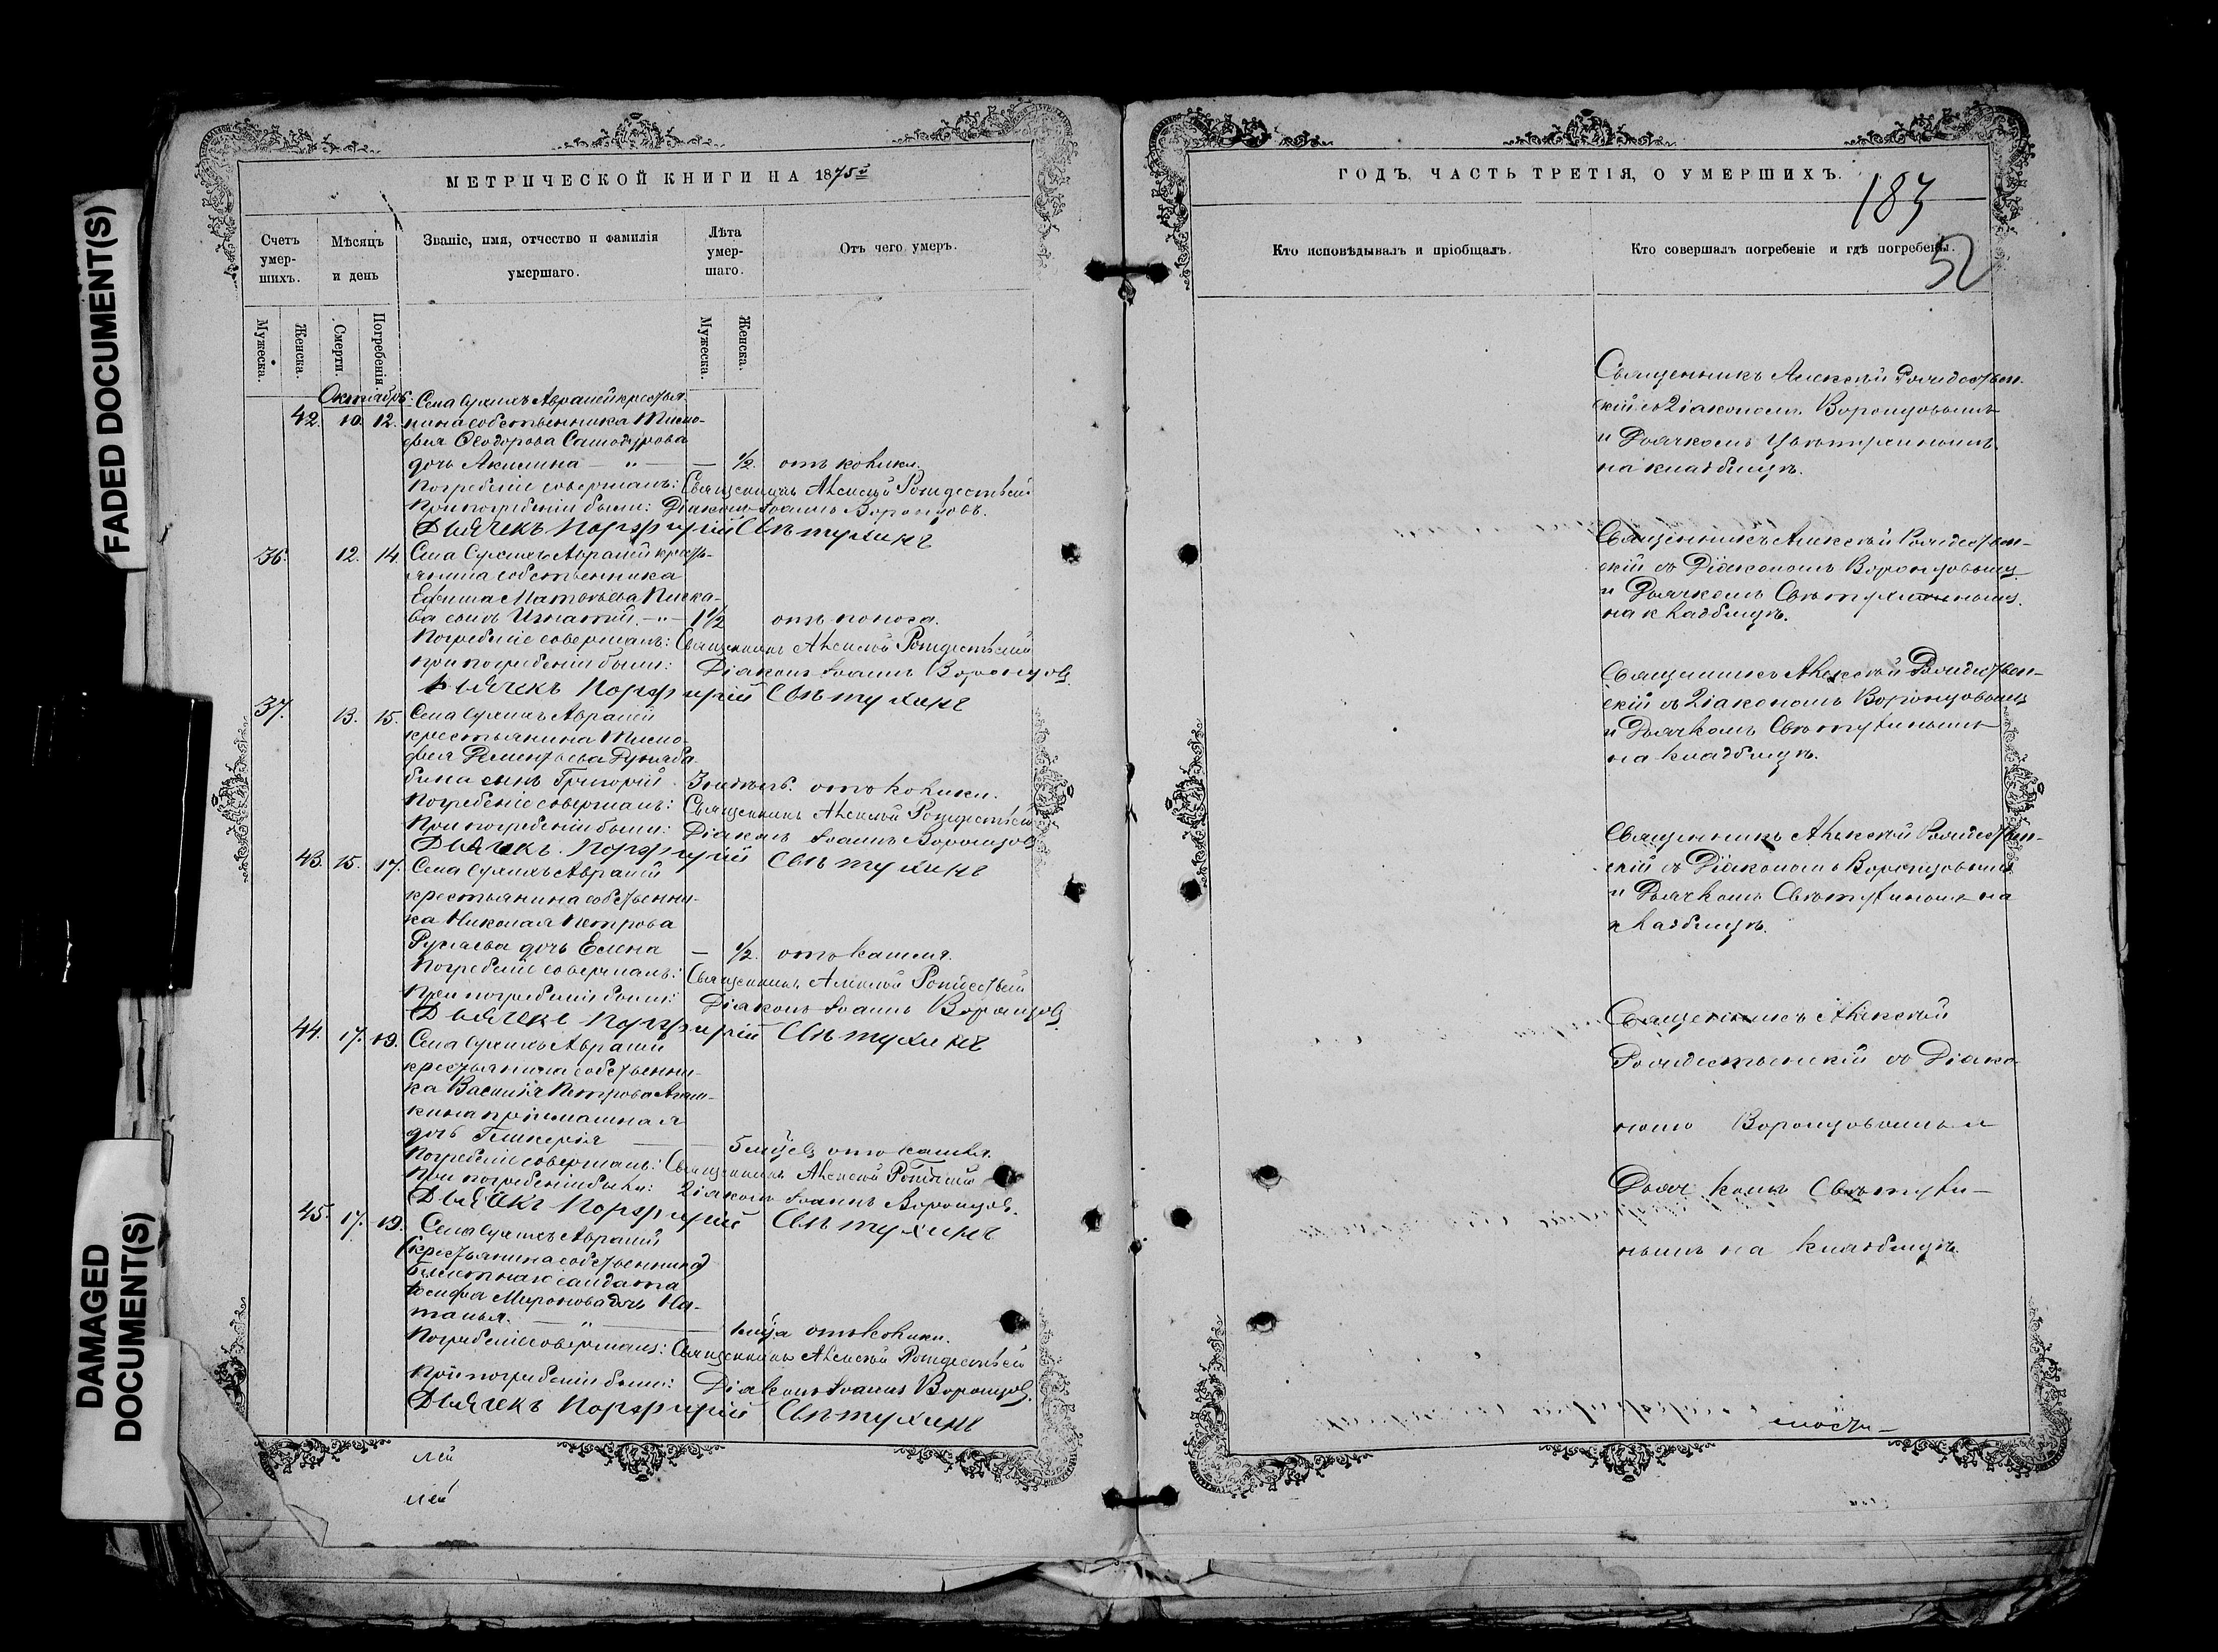 FADED DOCUMENT(S)
DAMAGED
DOCUMENT(S)
МЕТРИЧЕСКОЙ КНИГИ НА 1875й
Счетъ умер-шихъ.
Мѣсяцъ и день
Званіе, имя, отчество и фамилія умершаго.
Лѣта умер-шаго.
Отъ чего умеръ.
Мужеска.
Женска.
Смерти.
Погребенія.
Мужеска.
Женска.
Октябрь. Села Аврамей крестья-
42. 10. 12. нина собственника Тимо-
фея Ѳеодорова
дочь Акилина — „ — — ½. отъ колики.
Погребеніе совершалъ: Священникъ Алексѣй Рождествѣскій
При погребеніи были: Діаконъ Іоаннъ Воронцовъ.
Дьячекъ Порфирій Свѣтухинъ
36. 12. 14. Села Аврамей кресть-
янина собственника
Ефима Матвѣева Писка-
ва сынъ Игнатій. — „ — 1½ отъ поноса.
Погребеніе совершалъ: Священникъ Алексѣй Рождествѣскій
При погребеніи были: Діаконъ Іоаннъ Воронцовъ.
Дьячекъ Порфирій Свѣтухинъ
37. 13. 15. Села Аврамей
крестьянина Тимо-
фея
бина сынъ Григорій. отъ колики.
Погребеніе совершалъ: Священникъ Алексѣй Рождествѣскій
При погребеніи были: Діаконъ Іоаннъ Воронцовъ
Дьячекъ Порфирій Свѣтухинъ
43. 15. 17. Села Аврамей
крестьянина собственни-
ка Николая Петрова
дочь Елена — ½. отъ кашля.
Погребеніе совершалъ: Священникъ Алексѣй
При погребеніи были: Діаконъ Іоаннъ Воронцовъ
Дьячекъ Порфирій Свѣтухинъ
44. 17. 19. Села Аврамей
крестьянина собственни-
ка Василія Петрова
кина пріемашная
дочь Гликерія — 5 мѣцевъ отъ кашля.
Погребеніе совершалъ: Священникъ Алексѣй
При погребеніи были: Діаконъ Іоаннъ Воронцовъ.
Дьячекъ Порфирій Свѣтухинъ
45. 17. 19. Села Аврамей
(крестьянина собственника)
билетнаго солдата
Іосифа Миронова дочь На-
талья. — „ — 1 мѣца отъ колики.
Погребеніе совершалъ: Священникъ Алексѣй Рождествѣскій
При погребеніи были: Діаконъ Іоаннъ Воронцовъ
Дьячекъ Порфирій Свѣтухинъ
лей
лей
ГОДЪ, ЧАСТЬ ТРЕТІЯ, О УМЕРШИХЪ.
183
52
Кто исповѣдывалъ и пріобщалъ.
Кто совершалъ погребеніе и гдѣ погребены.
Священникъ Алексѣй Рождествен-
скій съ Діакономъ Воронцовымъ
и Дьячкомъ Цвѣтухинымъ
на кладбищѣ.
Священникъ Алексѣй Рождествен-
скій съ Діакономъ Воронцовымъ
и Дьячкомъ
на кладбищѣ.
Священникъ Алексѣй Рождествен-
скій съ Діакономъ Воронцовымъ
и Дьячкомъ Свѣтухинымъ
на кладбищѣ.
Священникъ Алексѣй Рождествен-
скій съ Діакономъ Воронцовымъ
и Дьячкомъ Свѣтухинымъ на
кладбищѣ.
Священникъ Алексѣй
Рождественскій съ Діако-
номъ Воронцовымъ и
Дьячкомъ Свѣтухи-
нымъ на кладбищѣ.